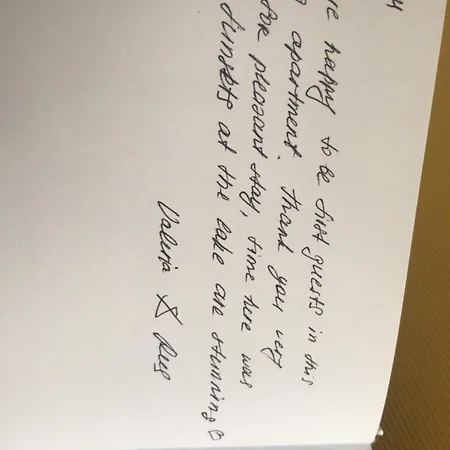 4
re happy to be first guests in this
apartment. Thank you very
for pleasant stay, time here was
Sunsets at the lake are stunning ♡
Valeria &